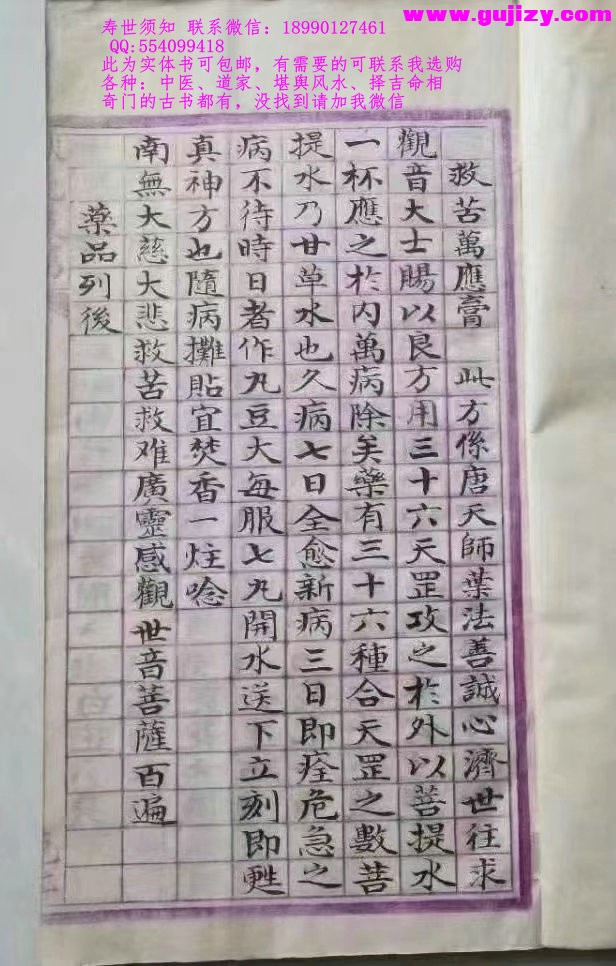 www.gujizy.com
寿世须知 联系微信：18990127461
QQ:554099418
此为实体书可包邮，有需要的可联系我选购
各种：中医、道家、堪舆风水、择吉命相
奇门的古书都有，没找到请加我微信
救苦萬應膏 此方係唐天師葉法善誠心濟世往求
觀音大士賜以良方用三十六天罡攻之於外以菩提水
一杯應之於內萬病除矣藥有三十六種合天罡之數菩
提水乃甘草水也久病七日全愈新病三日即痊危急之
病不待時日者作丸豆大每服七丸開水送下立刻即甦
真神方也隨病攤貼宜焚香一炷唸
南無大慈大悲救苦救难廣靈感觀世音菩薩百遍
藥品列後